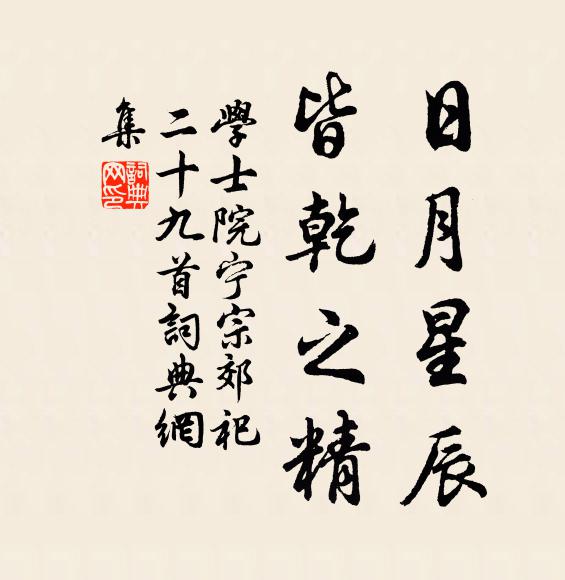 日月星辰
皆乾之精
學士院宁宗郊祀
二十九首詞典網
集
詞典网印